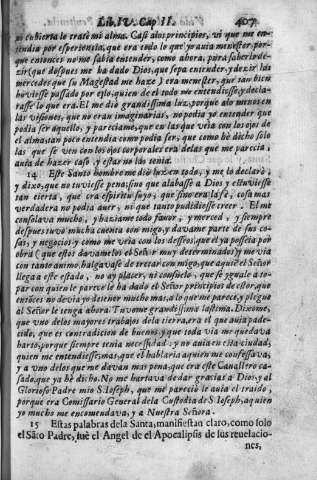 Lib. IV. Cap. II. 407
ni cubierta le traté mi alma. Casi alos principios, vi que me en-
tendia por esperiencia, que era todo lo que yo auia menester, por-
que entonces no me sabia entender, como ahora, para saberlo de-
zir (que despues me ha dado Dios, que sepa entender, y dezir las
mercedes que su Magestad me haze) era menester, que tan bien
houiesse passado por ello, quien de el todo me entendiesse, y decla-
rasse lo que era. El me dio grandissima luz, porque alo menos en
las visiones, que no eran imaginarias, no podia yo entender que
podia ser aquello, y pareciame, que en las que veia con los ojos de
el alma, tan poco entendia como podia ser, que como he dicho solo
las que se ven con los ojos corporales era delas que me parecia,
auia de hazer caso, y estas no las tenia.
14. Este Santo hombre me dio luz en todo, y me lo declarò,
y dixo, que no tuuiesse pena; sino que alabasse a Dios y estuuiesse
tan cierta, que era espiritu suyo, que sino era la fè, cosa mas
verdadera no podia auer, ni que tanto pudiesse creer. El me
consolaua mucho, y haziame todo fauor, y merced, y siempre
despues tuvo mucha cuenta con migo, y davame parte de sus co-
sas, y negocios y como me veia con los desseos, que el ya posseia por
obra (que estos dauamelos el Señor muy determinados) y me via
con tanto animo, holgavase de tratar con migo, que aquien el Señor
llega a este estado, no ay placer, ni consuelo, que se yguale a to-
par con quien le parece le ha dado el Señor principios de esto; que
entonces no devia yo de tener mucho mas, a lo que me parece, y plegue
al Señor le tenga ahora. Tuvome grandissima lastima. Dixome,
que vno delos mayores trabajos dela tierra, era el que auia pade-
cido, que es contradicion de buenos, y que toda via me quedava
harto, porque siempre tenia necessidad; y no auia en esta ciudad,
quien me entendiesse, mas, que el hablaria aquien me confessava,
y a vno delos que me davan mas pena, que era este Cavallero ca-
sado, que ya he dicho. No me hartava de dar gracias a Dios, y al
Glorioso Padre mio S. Ioseph, que me pareciò le auia el traido,
porque era Comissario General dela Custodia de S. Ioseph, aquien
yo mucho me encomendava, y a Nuestra Señora.
15 Estas palabras dela Santa, manifiestan claro, como solo
el Sãto Padre, fuè el Angel de el Apocalipsis de sus reuelacio-
nes,